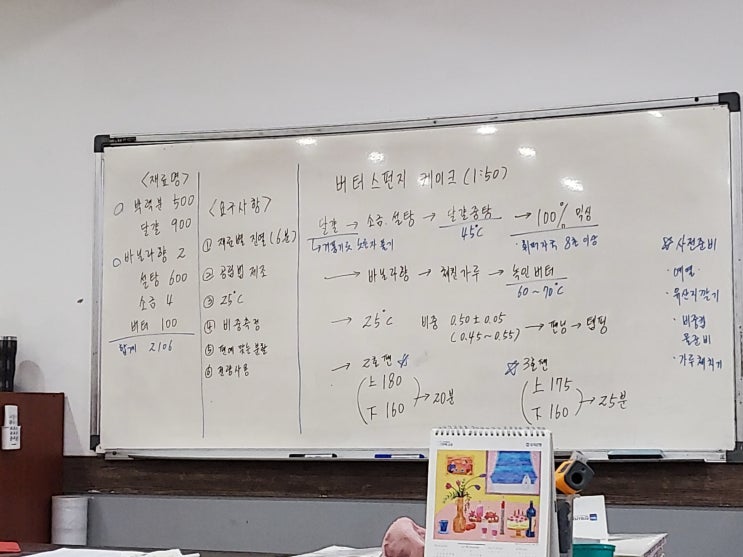 <재료명>
박력분 500
달걀 900
바닐라향 2
설탕 600
소금 4
버터 100
합계 2106
<요구사항>
① 재료별 진열 (6분)
② 공립법 제조
③ 25℃
④ 비중측정
⑤ 팬에 맞는 분할
⑥ 전량사용
버터스펀지 케이크 (1:50)
달걀 → 소금.설탕 → 달걀중탕 → 100% 믹싱
45℃
→ 바닐라향 → 체질가루 → 녹인버터
60~70℃
→ 25℃ 비중 0.50±0.05 → 팬닝 → 탭핑
(0.45~0.55)
→ 2호팬
上 180
下 160
→ 20분
3호팬
上 175
下 160
→ 25분
사전준비
· 예열
· 유산지깔기
· 비중컵
물준비
· 가루체치기